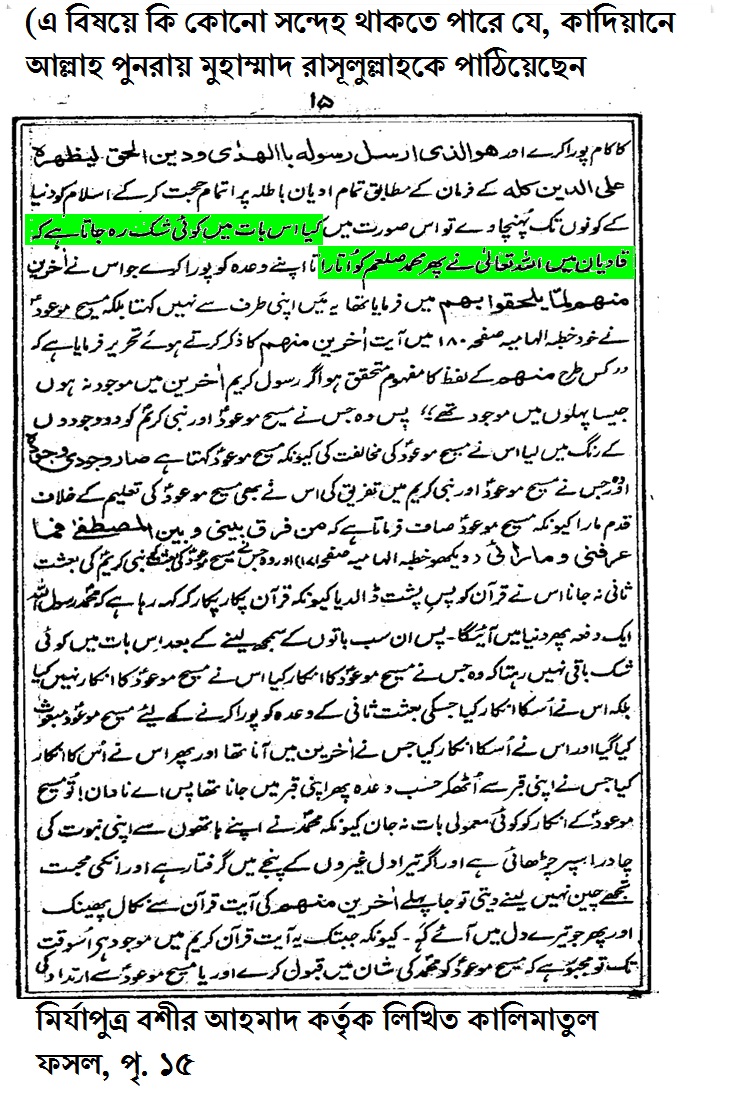 (এ বিষয়ে কি কোনো সন্দেহ থাকতে পারে যে, কাদিয়ানে
আল্লাহ পুনরায় মুহাম্মাদ রাসূলুল্লাহকে পাঠিয়েছেন
۱۵
کا کام پورا کرے اور ھوالذی ارسل رسولہ باالھدٰی ودین الحق لیظھرہ
علی الدین کلہ کے فرمان کے مطابق تمام ادیان باطلہ پر اتمام حجت کر کے اسلام کو دنیا
کے کونوں تک پُہنچا وے تو اس صورت میں کیا اس بات میں کوئی شک رہ جاتا ہے کہ
قادیان میں اللہ تعالیٰ نے پھر محمد صلعم کو اُتارا تا اپنے وعدہ کو پورا کرے جو اس نے اٰخرین
منھم لمّا یلحقوا بھم میں فرمایا تھا یہ مَیں اپنی طرف سے نہیں کہتا بلکہ مسیح موعودؑ
نے خود خطبہ الہامیہ صفحہ ۱۸۰ میں آیت اٰخرین منھم کا ذکر کرتے ہوئے تحریر فرمایا ہے کہ
"کس طرح منھم کے لفظ کا مفہوم متحقق ہو اگر رسول کریم اٰخرین میں موجود نہ ہوں
جیسا پہلوں میں موجود تھے" پس وہ جس نے مسیح موعودؑ اور نبی کریمؐ کو دو وجودوں
کے رنگ میں لیا اس نے مسیح موعودؑ کی مخالفت کی کیونکہ مسیح موعودؑ کہتا ہے صار وجودی وجودہ
اور جس نے مسیح موعودؑ اور نبی کریم میں تفریق کی اس نے بھی مسیح موعودؑ کی تعلیم کے خلاف
قدم مارا کیونکہ مسیح موعودؑ صاف فرماتا ہے کہ من فرق بینی و بین المصطفٰے فما
عرفنی وما رائی (دیکھو خطبہ الہامیہ صفحہ ۱۷۱) اور وہ جس نے مسیح موعودؑ کی بعثت کو نبی کریمؐ کی بعثت
ثانی نہ جانا اس نے قرآن کو پسِ پشت ڈالدیا کیونکہ قرآن پکار پکار کر کہہ رہا ہے کہ محمد رسول اللہ
ایک دفعہ پھر دنیا میں آئیگا۔ پس ان سب باتوں کے سمجھ لینے کے بعد اس بات میں کوئی
شک باقی نہیں رہتا کہ وہ جس نے مسیح موعودؑ کا انکار کیا اس نے مسیح موعودؑ کا انکار نہیں کیا
بلکہ اس نے اُسکا انکار کیا جسکی بعثت ثانی کے وعدہ کو پورا کرنے کے لیئے مسیح موعودؑ مبعوث
کیا گیا اور اس نے اُسکا انکار کیا جس نے اٰخرین میں آنا تھا اور پھر اس نے اُس کا انکار
کیا جس نے اپنی قبر سے اُٹھکر حسب وعدہ پھر اپنی قبر میں جانا تھا پس اے نادان! تُو مسیح
موعودؑ کے انکار کو کوئی معمولی بات نہ جان کیونکہ محمدؐ نے اپنے ہاتھوں سے اپنی نبوت کی
چادر اسپر چڑھائی ہے اور اگر تیرا دل غیروں کے پنجے میں گرفتار ہے اور انکی محبت
تجھے چین نہیں لینے دیتی تو جا پہلے اٰخرین منھم کی آیت قرآن سے نکال پھینک
اور پھر جو تیرے دل میں آئے کہہ۔ کیونکہ جبتک یہ آیت قرآن کریم میں موجود ہے اُسوقت
تک تو مجبور ہے کہ مسیح موعودؑ کو محمدؐ کی شان میں قبول کرے اور یا مسیح موعودؑ سے ارتداد کی
মির্যাপুত্র বশীর আহমাদ কর্তৃক লিখিত কালিমাতুল
ফসল, পৃ. ১৫